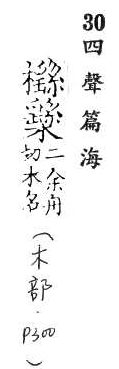 30四聲篇海
二余角
切木名
（木部．P300）